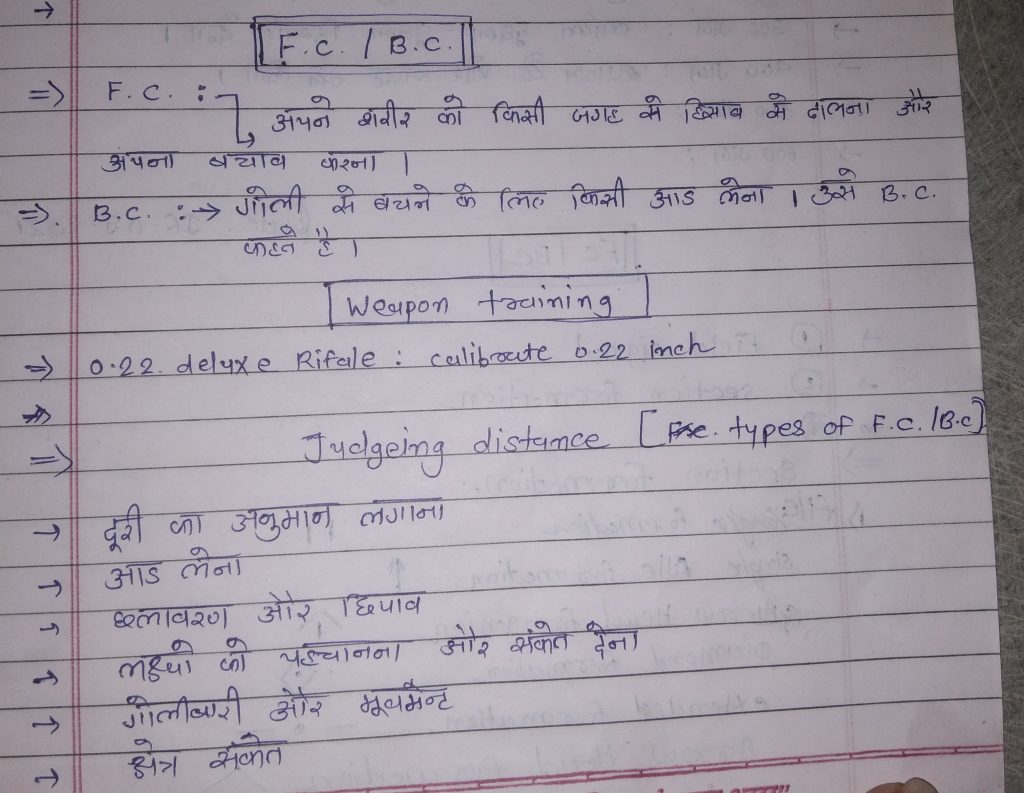 F.C. / B.C.
⇒ F.C. :- अपने शरीर को किसी जगह से हिसाब से ढालना और
अपना बचाव करना |
⇒ B.C. :→ गोली से बचने के लिए किसी आड लेना | उसे B.C.
कहते है |
Weapon training
⇒ 0.22. deluxe Rifale : calibrate 0.22 inch
⇒
⇒ Judgeing distance [ types of F.C. /B.C]
→ दूरी का अनुमान लगाना
→ आड लेना
→ छलावरण और छिपाव
→ लक्ष्यो को पहचानना और संकेत देना
→ गोलीबारी और मूवमेन्ट
→ क्षेत्र संकेत